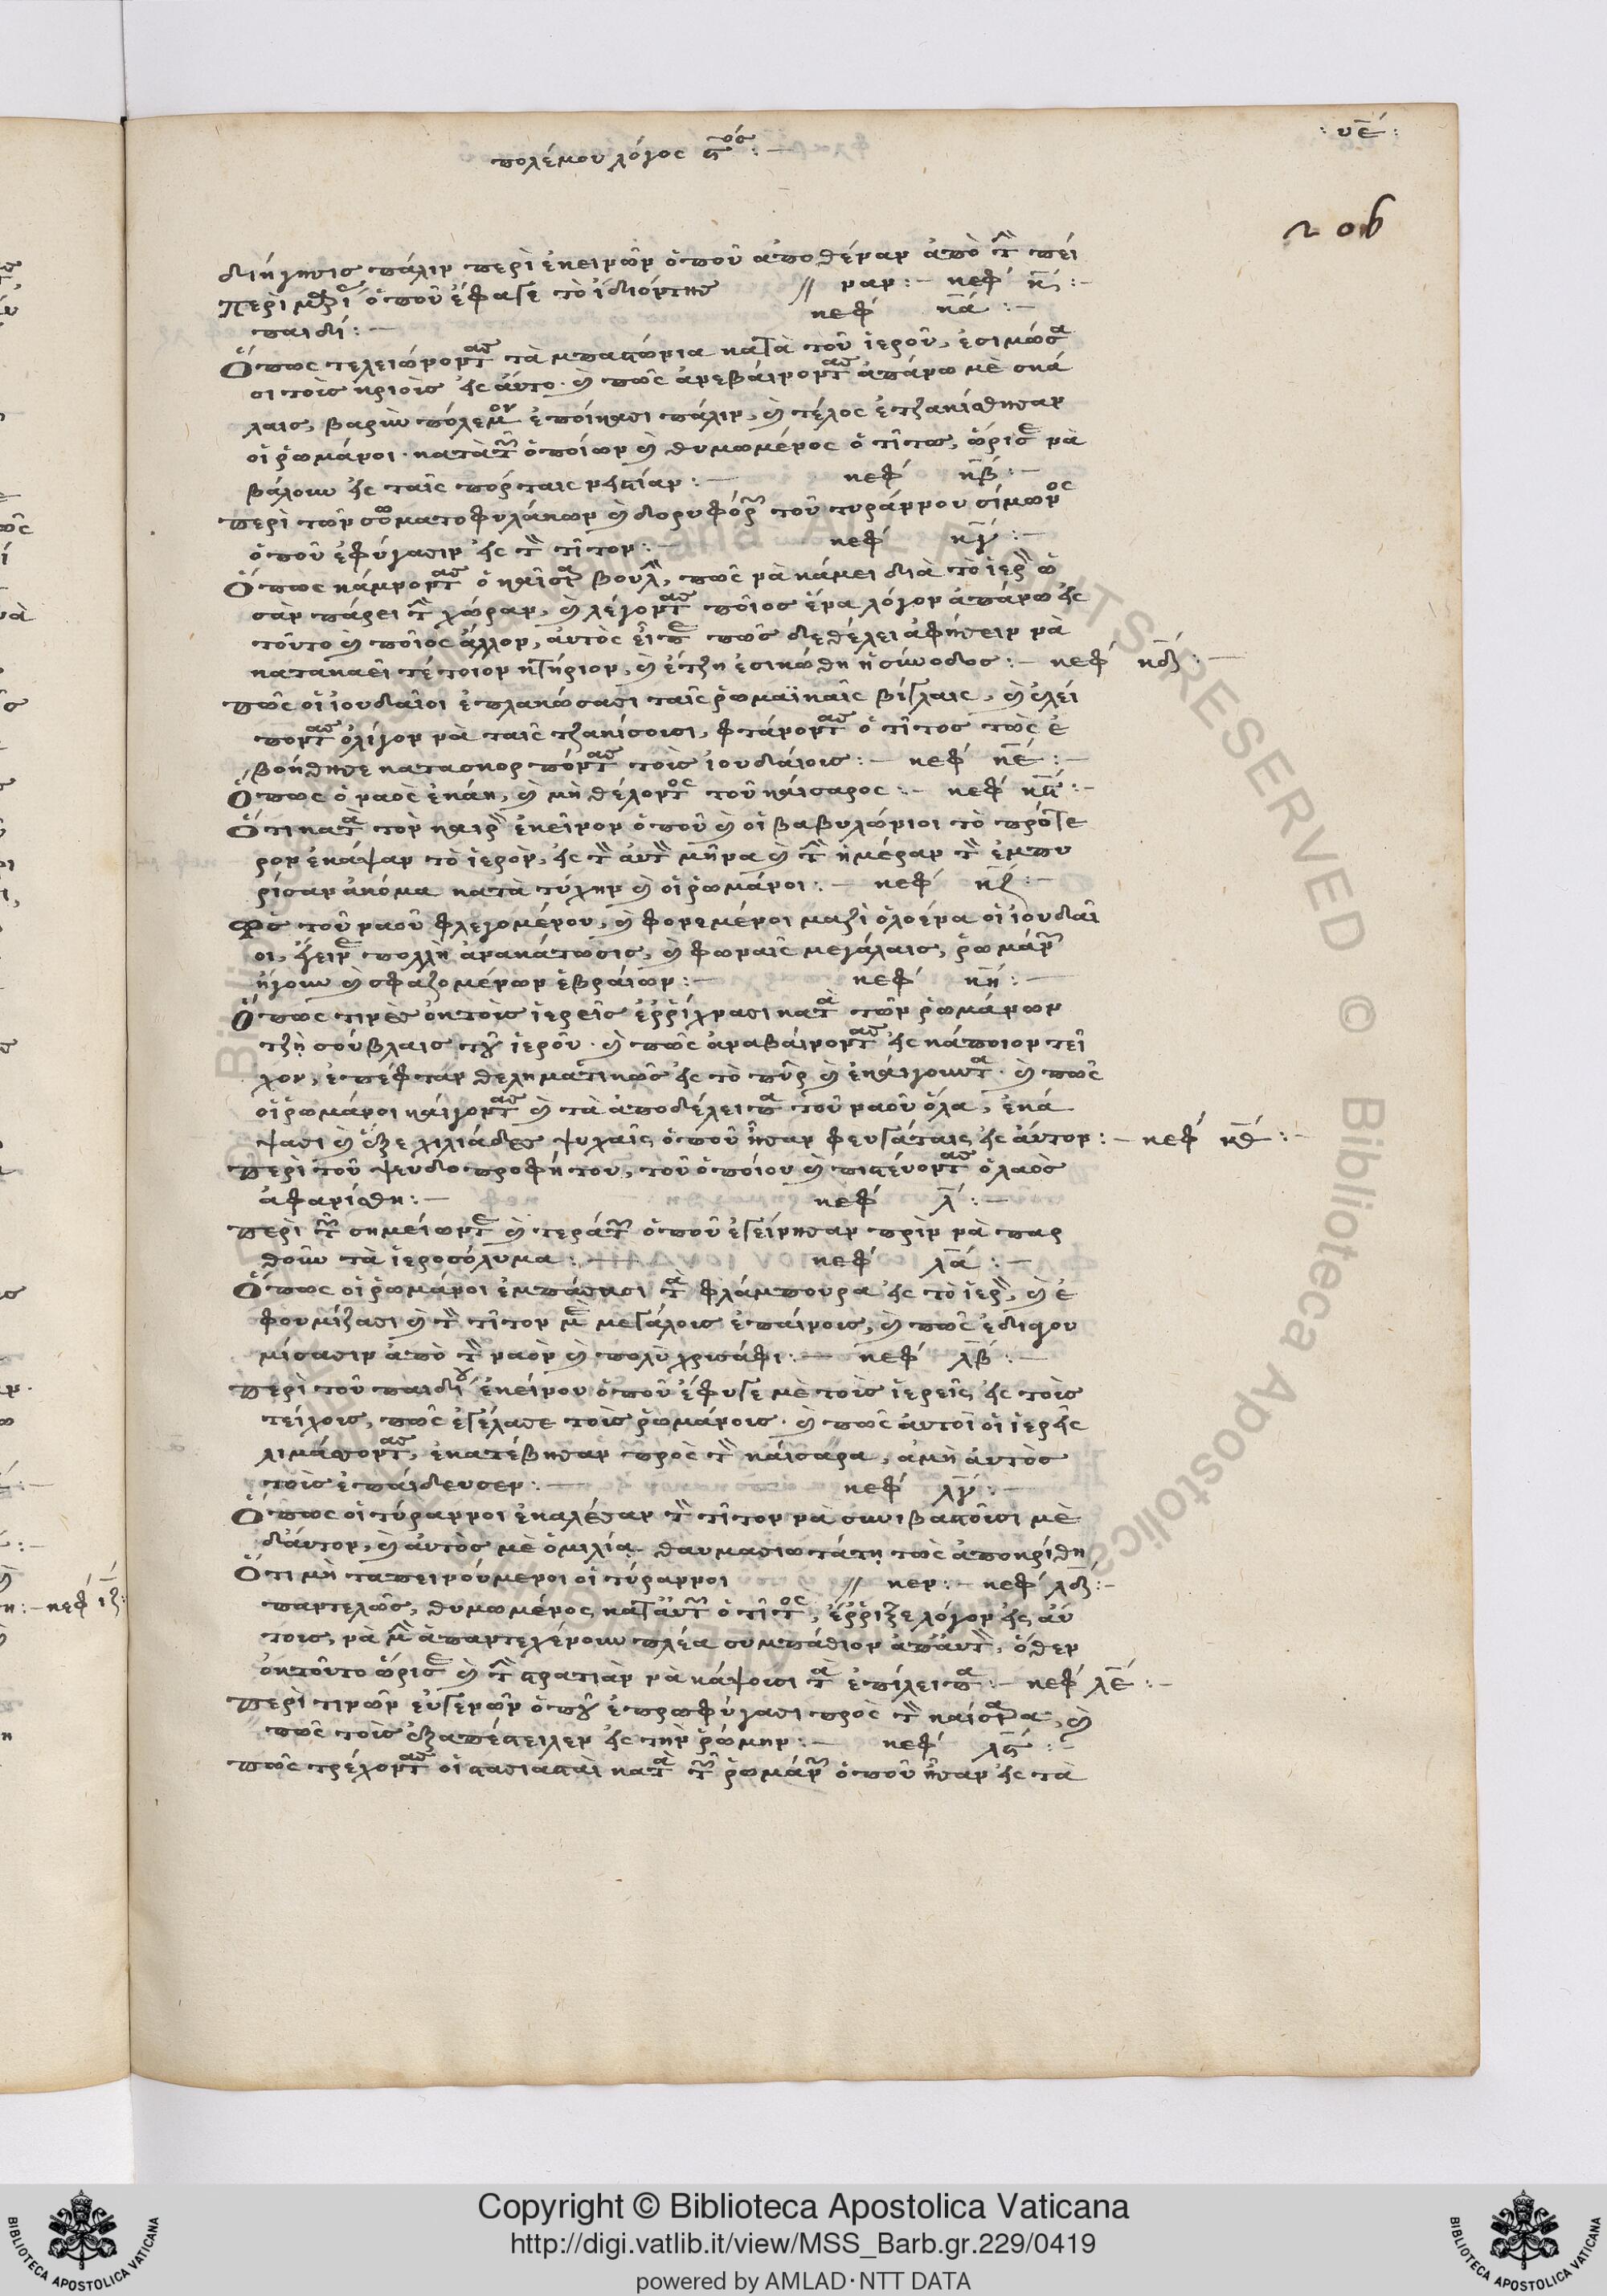 : υε :
πολέμου λόγος ϛος :—
206
διήγησις πάλιν περὶ ἐκεινῶν ὁποῦ ἀποθέναν ἀπὸ τὴν πεί
// ναν :— κεφ κ :—
Περὶ μητρὸς ὁποῦ ἔφαγε τὸ ἰδιόντης
παιδί :— κεφ κα :—
Ὅπως τελειώνοντας τὰ μπαστιώρια κατὰ τοῦ ἱεροῦ, ἐσιμώσα
σι τοῖς κριοῖς εἰς αὐτό. καὶ πῶς ἀνεβαίνοντας ἀπάνω μὲ σκά
λαις, βαρὺν πόλεμον ἐποίησασι πάλιν, καὶ τέλος ἐτζακίσθησαν
οἱ ῥωμάνοι. κατὰ τῶν ὁποίων καὶ θυμωμένος ὁ τῖτος, ὥρισε νὰ
βάλουν εἰς ταῖς πόρταις νηστίαν :— κεφ κβ :—
Περὶ τῶν σωματοφυλάκων καὶ δορυφόρων τοῦ τυράννου σίμωνος
ὁποῦ ἐφύγασιν εἰς τὸν τῖτον :— κεφ κγ :—
Ὅπως κάμνοντας ὁ καῖσαρας βουλὴν, πῶς νὰ κάμει διὰ τὸ ἱερὸν ὡ
σὰν πάρει τὴν χώραν, καὶ λέγοντας ποῖος ἕνα λόγον ἀπάνω εἰς
τοῦτο καὶ ποῖος ἄλλον, αὐτὸς εἶπε πῶς δὲ θέλει ἀφήσειν νὰ
κατακαεῖ τέτοιον κτήριον, καὶ ἔτζη ἐσικώθη ἡ σύνοδος :— κεφ κδ :—
Πῶς οἱ ἰουδαῖοι ἐπλακώσασι ταῖς ῥωμαϊκαῖς βίγλαις, καὶ ἐλεί
ποντας ὀλίγον νὰ ταῖς τζακίσουσι, φτάνοντας ὁ τῖτος τῶς ἐ
βοήθησε κατασκορπόντας τοῖς ἰουδαίοις :— κεφ κε :—
Ὅπως ὁ ναὸς ἐκάη, καὶ μὴ θέλοντος τοῦ καίσαρος :— κεφ κϛ :—
Ὅτι κατὰ τὸν καιρὸν ἐκεῖνον ὁποῦ καὶ οἱ βαβυλώνιοι τὸ πρότε
ρον ἐκάψαν τὸ ἱερὸν, εἰς τὸν αὐτὸν μῆνα καὶ τὴν ἡμέραν τὸν ἐμπυ
ρίσαν ἀκόμα κατὰ τύχην καὶ οἱ ῥωμάνοι :— κεφ κζ :—
Ὡς τοῦ ναοῦ φλεγομένου, καὶ φονεμένοι μαζὶ ὁλοένα οἱ ἰουδαῖ
οι, ἔγεινε πολλὴ ἀνακάτωσις, καὶ φωναῖς μεγάλαις, ῥωμάνων
ἤγουν καὶ σφαζομένων ἑβραίων :— κεφ κη :—
Ὅπως τινὲς ἐκ τοῖς ἱερεῖς ἐῤῥίχνασι κατὰ τῶν ῥωμάνων
τζὴ σούβλαις τοῦ ἱεροῦ. καὶ πῶς ἀναβαίνοντας εἰς κάποιον τεῖ
χον, ἐπέφταν θεληματικῶς εἰς τὸ πῦρ καὶ ἐκαίγουντα. καὶ πῶς
οἱ ῥωμάνοι καίγοντας καὶ τὰ ἀποδέλειπα τοῦ ναοῦ ὅλα, ἐκά
ψασι καὶ ἕξε χιλιάδες ψυχαῖς ὁποῦ ἦσαν φευγάταις εἰς αὐτον :— κεφ κθ :—
Περὶ τοῦ ψευδοπροφήτου, τοῦ ὁποίου καὶ πιστεύοντας ὁ λαὸς
ἀφανίσθη :— κεφ λ :—
Περὶ τῶν σημείων τε καὶ τεράτων ὁποῦ ἐγείνησαν πρὶν νὰ παρ
θοῦν τὰ ἱεροσόλυμα :— κεφ λα :—
Ὅπως οἱ ῥωμάνοι ἐμπάσασι τὰ φλάμπουρα εἰς τὸ ἱερὸν, καὶ ἐ
φουμίζασι καὶ τὸν τῖτον μὲ μεγάλοις ἐπαίνοις, καὶ πῶς ἐδιαγου
μίσασιν ἀπὸ τὸν ναὸν καὶ πολὺ χρισάφι :— κεφ λβ :—
Περὶ τοῦ παιδίου ἐκείνου ὁποῦ ἔφυγε μὲ τοῖς ἱερεῖς εἰς τοῖς
τείχοις, πῶς ἐγέλασε τοῖς ῥωμάνοις. καὶ πῶς αὐτοὶ οἱ ἱερεῖς
λιμάσσοντας, ἐκατέβησαν πρὸς τὸν καίσαρα, ἀμὴ αὐτὸς
τοῖς ἐπαίδευσεν :— κεφ λγ :—
Ὅπως οἱ τύραννοι ἐκαλέσαν τὸν τῖτον νὰ συνιβαστοῦσι μὲ
δαύτον, καὶ αὐτὸς μὲ ὁμιλία θαυμασιωτάτη τῶς ἀποκρίθη
// κεν :— κεφ λδ :—
Ὅτι μὴ ταπεινούμενοι οἱ τύραννοι
παντελῶς, θυμωμένος κατ' αὐτῶν ὁ τῖτος, ἔῤῥιξε λόγον εἰς αὐ
τοῖς, νὰ μὴν ἀπαντεχένουν πλέα συμπάθιον ἀπ' αὐτὸν, ὅθεν
ἐκ τοῦτο ὥρισε καὶ τὴν στρατιὰν νὰ κάψουσι τὰ ἐπίλειπα :— κεφ λε :—
Περὶ τινῶν εὐγενῶν ὁποῦ ἐπροσφύγασι πρὸς τὸν καίσαρα, καὶ
πῶς τοῖς ἐξαπέστειλεν εἰς τὴν ῥώμην :— κεφ λϛ :—
Πῶς τρέχοντας οἱ στασιασταὶ κατὰ τῶν ῥωμάνων ὁποῦ ἦσαν εἰς τὰ
Copyright © Biblioteca Apostolica Vaticana
http://digi.vatlib.it/view/MSS_Barb.gr.229/0419
powered by AMLAD·NTT DATA